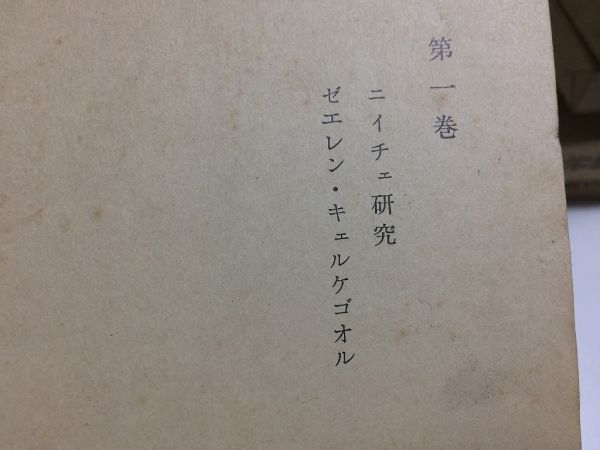 第一巻
ニイチェ研究
ゼエレン・キェルケゴオル